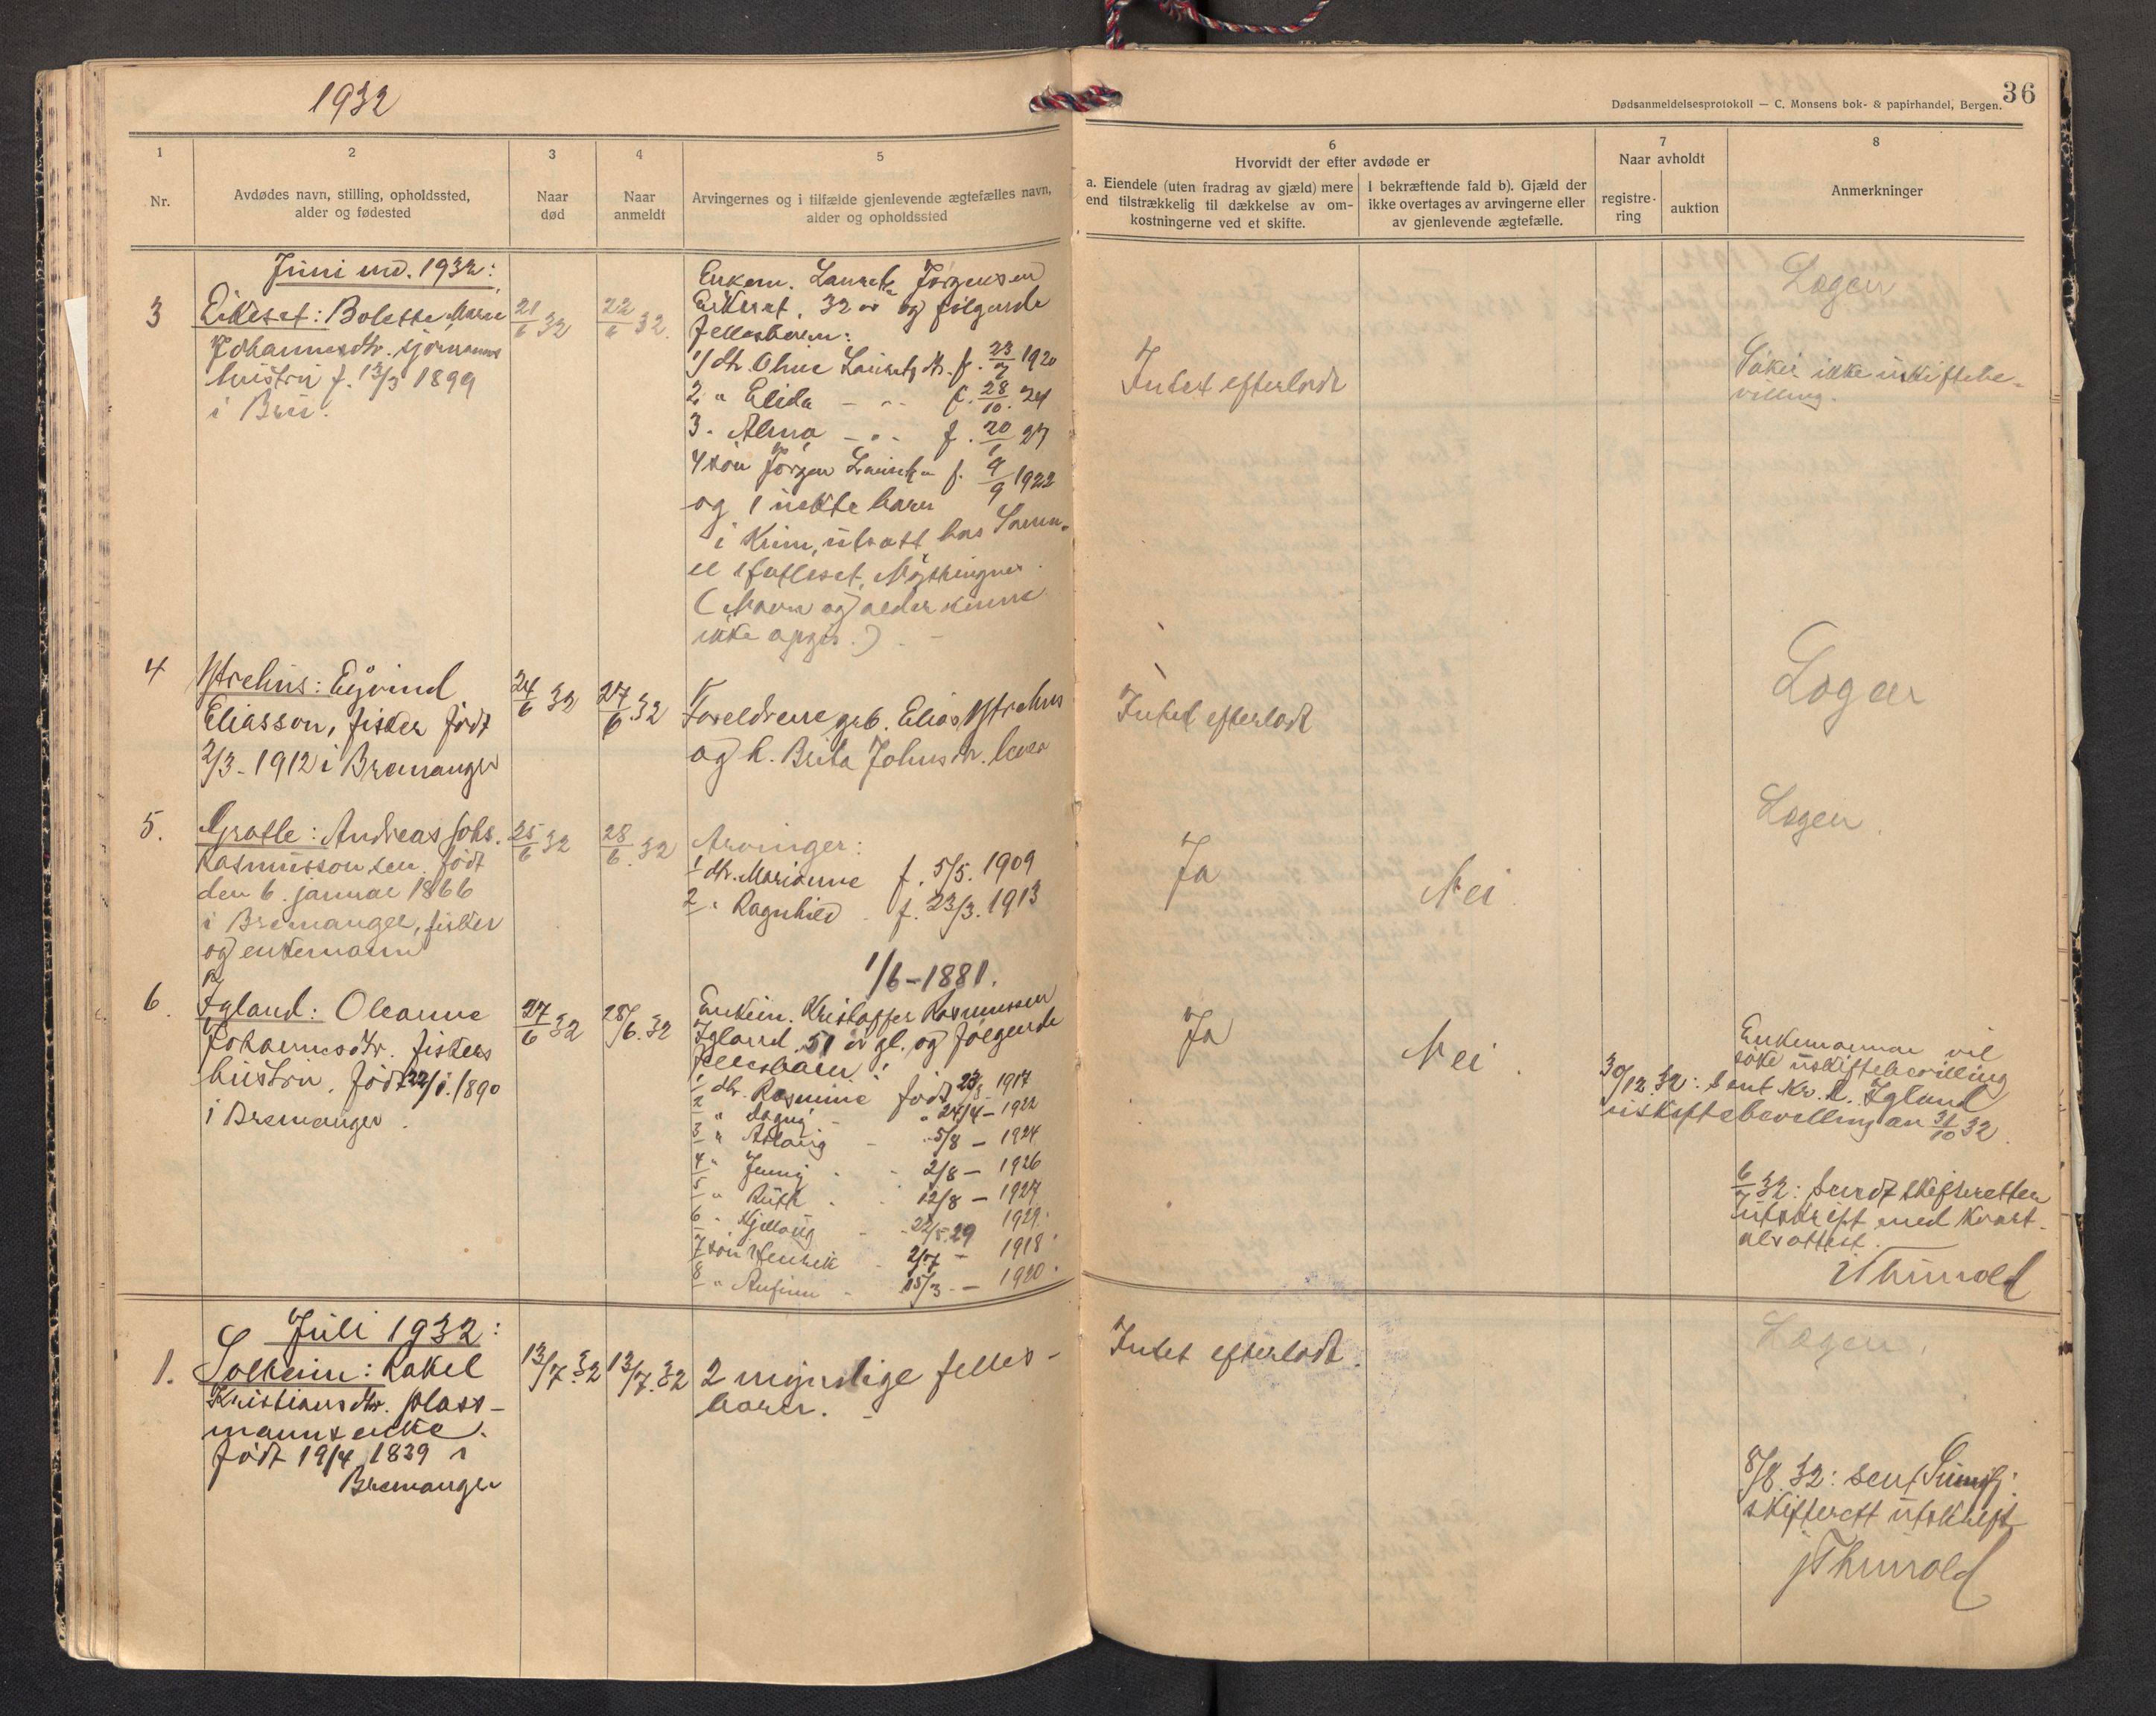 1932
36
Dødsanmeldelsesprotokoll — C. Monsens bok- & papirhandel, Bergen.
1
2
3
4
5
6
7
8
Nr.
Avdødes navn, stilling, opholdssted,
alder og fødested
Naar
død
Naar
anmeldt
Arvingernes og i tilfælde gjenlevende ægtefælles navn,
alder og opholdssted
Hvorvidt der efter avdøde er
a. Eiendele (uten fradrag av gjæld) mere
end tilstrækkelig til dækkelse av om-
kostningerne ved et skifte.
I bekræftende fald b). Gjæld der
ikke overtages av arvingerne eller
av gjenlevende ægtefælle.
Naar avholdt
registre-
ring
auktion
Anmerkninger
Juni md. 1932:
3
Eikeset: Bolette Marie
Johannesdtr. sjømanns
hustru f. 13/3 1899
i Bru.
21/6 32
22/6 32.
Enkem. Lauritz Jørgensen
Eikeset, 32 år og følgende
fellesbarn:
1/ dtr. Oline Lauritz dtr. f. 23/7 1920
2 " Elida — " — f. 28/10. 24
3. Alma — " — f. 20/1 27
4 søn Jørgen Lauritz f. 9/9 1922
og 1 uekte barn
i Krim, utsatt hos
(Navn og alder kunne
ikke opgis.)
Intet efterlodt
Logen
Søker ikke uskiftebe-
villing.
4
Ystrehus: Eyvind
Eliasson, fisker født
2/3 - 1912 i Bremanger
24/6 32
27/6. 32
Foreldrene grb. Elias Ystrehus
og h. Brita Johnsdtr. lever
Intet efterlodt
Logen
5.
Grotle: Andreas Johs.
Rasmusson sen. født
den 6. januar 1866
i Bremanger, fisker
og enkemann
25/6 32
28/6. 32
Arvinger:
1 dtr. Marianne f. 5/5. 1909
2 " Ragnhild - f. 23/3. 1913
Ja
Nei
Logen.
1/6 - 1881.
6.
Igland: Oleanne
Johannesdtr. fiskers
hustru. født 22/1. 1890
i Bremanger.
27/6 32
28/6. 32
Enkem. Kristoffer Rasmussen
Igland 51 år gl. og følgende
fellesbarn:
1 dtr. Rasmine født 23/8 1917
2 " Dagny - " 24/4 - 1922
3 " Aslaug - " 5/8 — 1924
4 " Jenny - - 2/8 — 1926
5 " Ruth - - 12/8 — 1927
6 " Kjellaug - - 22/5. 29 1929.
7 søn Henrik - 2/7 - 1918.
8 " Anfinn - 15/3 - — 1920.
Ja
Nei.
Enkemannen vil
søke uskiftebevilling
30/12. 32: Sent Kr. R. Igland
uskiftebevilling av 31/10 32.
6/7 32: Sendt skifteretten
utskrift med kvart-
alsattest.
Thunold
Juli 1932:
1.
Solheim: Rakel
Kristiansdtr. plass-
manns enke.
født 19/4 1839 i
Bremanger
13/7. 32
13/7. 32
2 myndige felles-
barn. -
Intet efterlodt.
Logen.
8/8. 32: Sent Sunnfj.
skifterett utskrift
Thunold